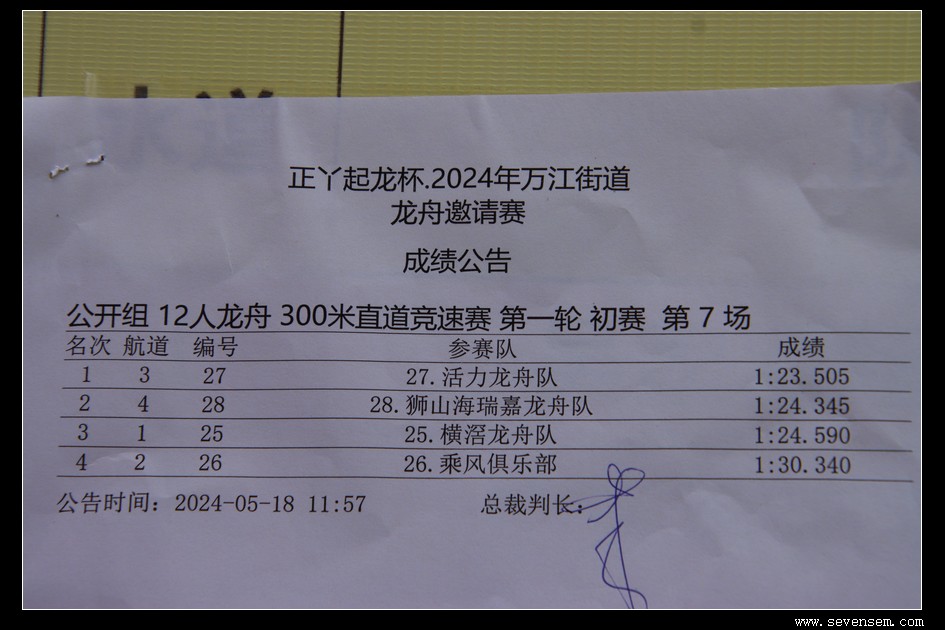 正丫起龙杯.2024年万江街道
龙舟邀请赛
成绩公告
公开组 12人龙舟 300米直道竞速赛 第一轮 初赛 第 7 场
名次 航道 编号 参赛队 成绩
1 3 27 27.活力龙舟队 1:23.505
2 4 28 28.狮山海瑞嘉龙舟队 1:24.345
3 1 25 25.横滘龙舟队 1:24.590
4 2 26 26.乘风俱乐部 1:30.340
公告时间：2024-05-18 11:57 总裁判长：
www.sevensem.com